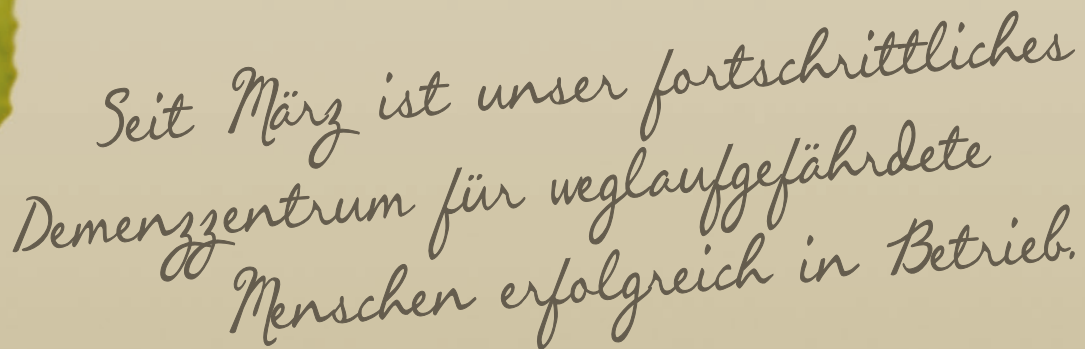 Seit März ist unser fortschrittliches
Demenzzentrum für weglaufgefährdete
Menschen erfolgreich in Betrieb.